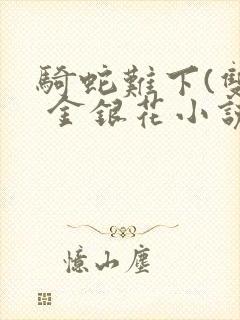 騎蛇難下(雙
金銀花小說
憶山塵